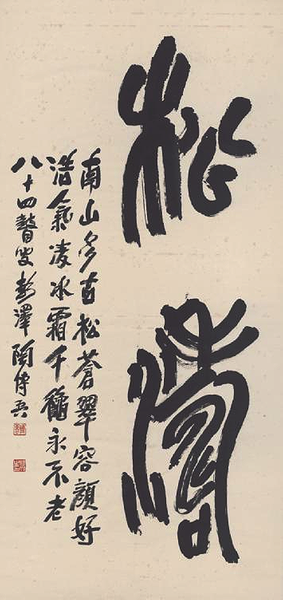 松
南山多古松蒼翠容顏好
浩氣凌冰霜千永不老
八十四瞽叟彭澤陶博吾